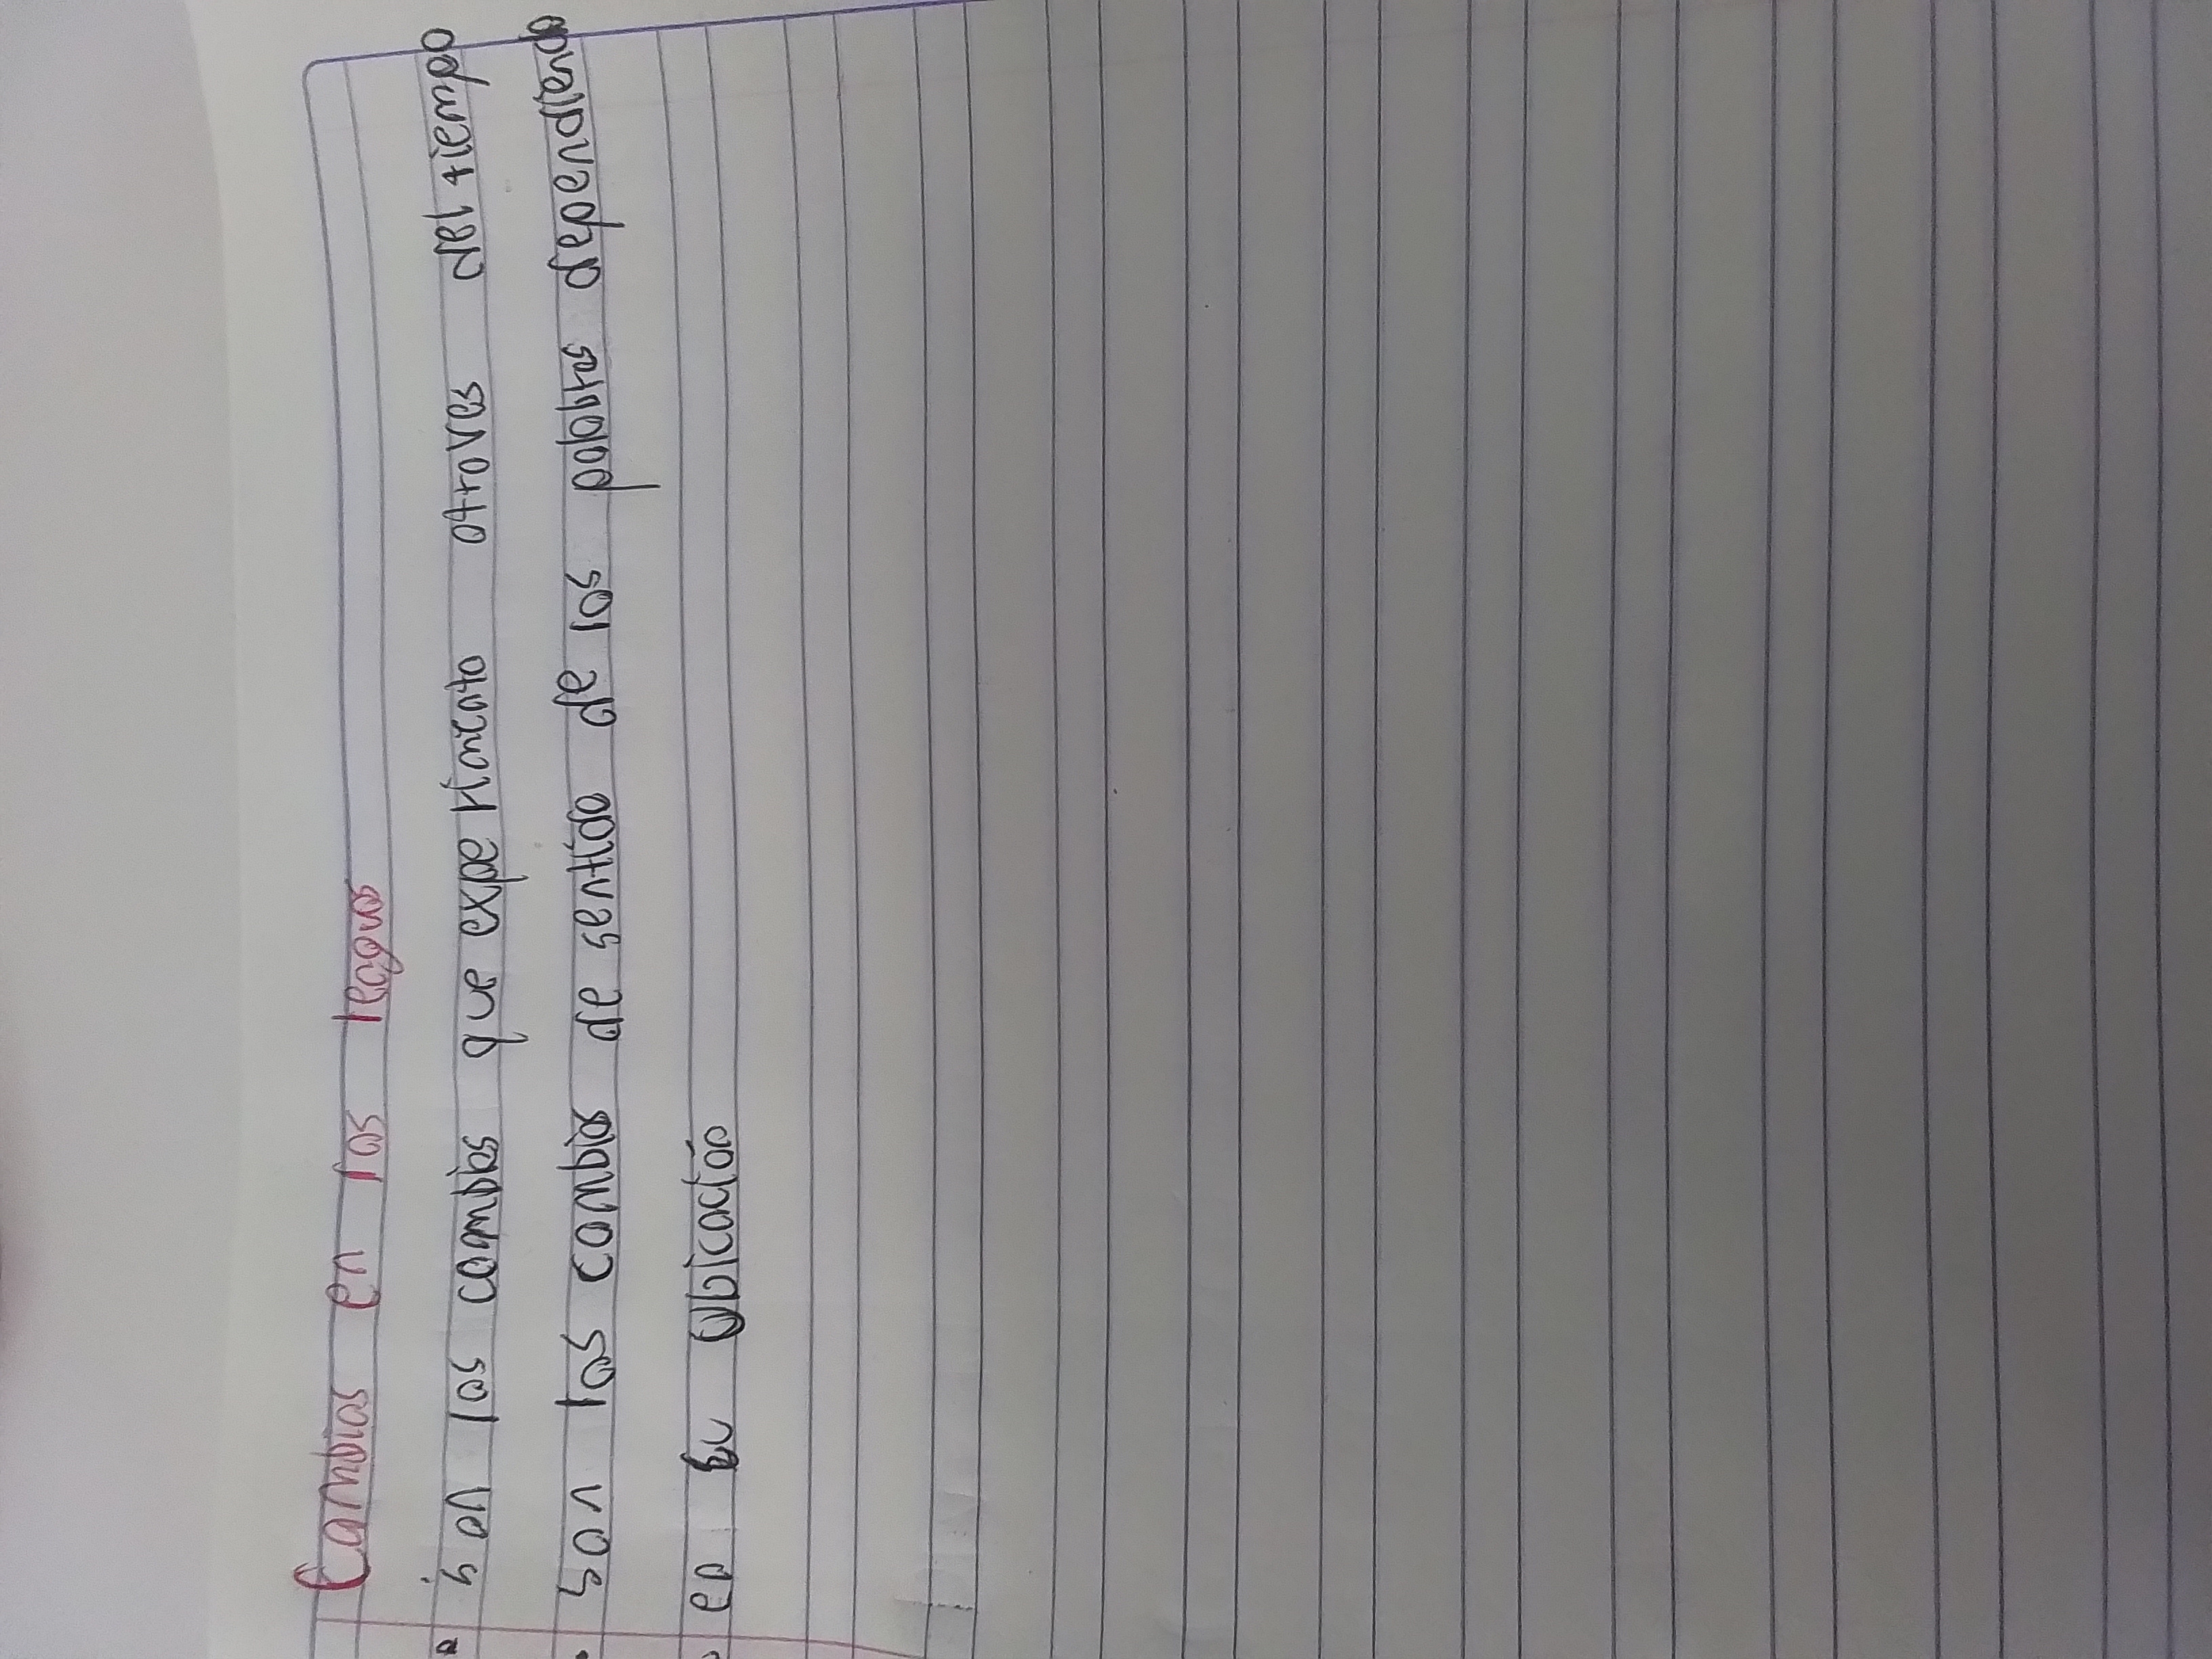 Cambios en las legus
son los cambios que experimenta otroves del tiempo
son los cambios de sentido de los palabras dependiendo
en su ubicación